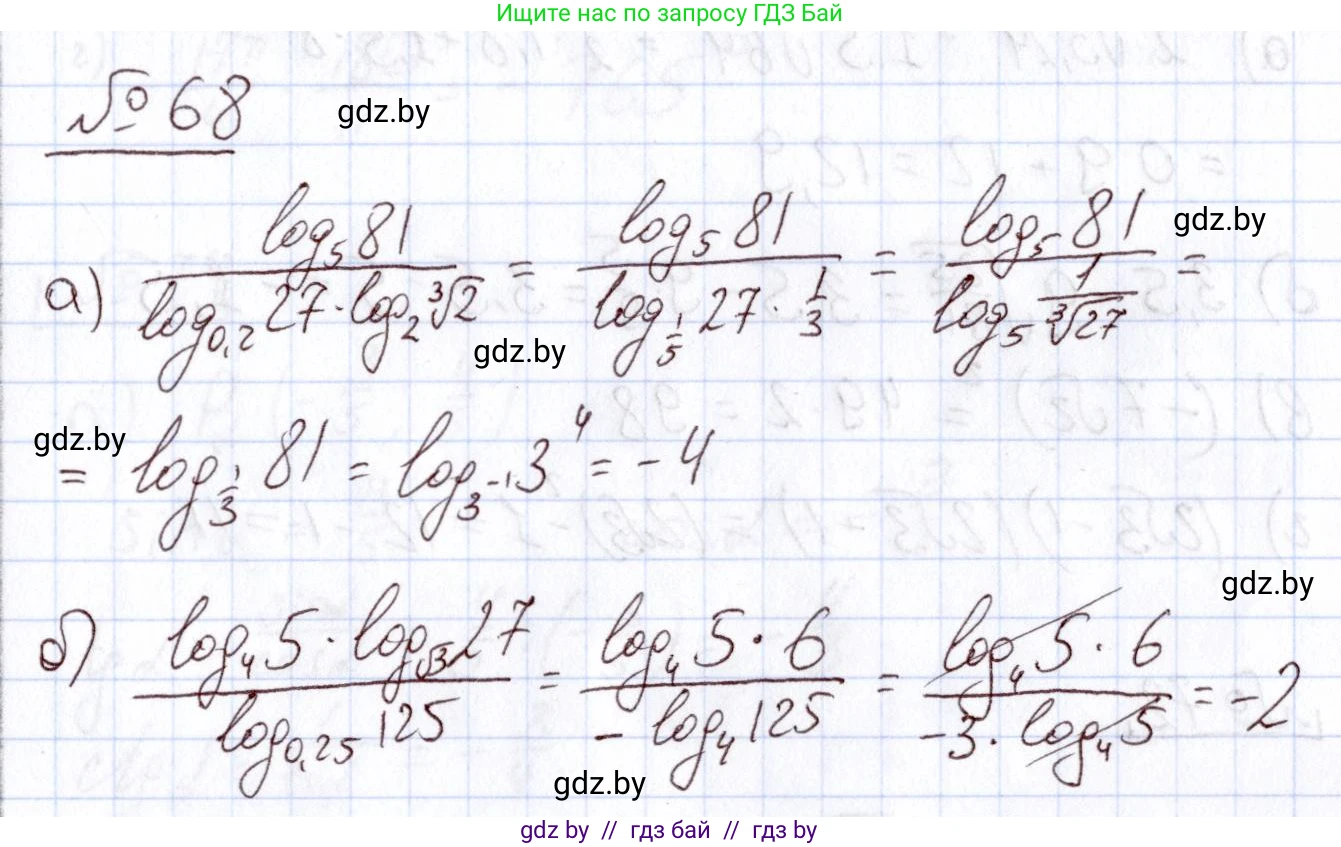 Ищите нас по запросу ГДЗ Бай
№ 68
gdz.by
а) log₅81 / (log₀,₂27 · log₂∛2) = log₅81 / (log_{1/5}27 · 1/3) = log₅81 / (log₅ 1/∛27) =
gdz.by
gdz.by
gdz.by
= log_{1/3}81 = log_{3⁻¹}3⁴ = -4
gdz.by
б) (log₄5 · log_{√3}27) / log₀,₂₅125 = (log₄5 · 6) / (-log₄125) = (log₄5 · 6) / (-3 · log₄5) = -2
gdz.by
gdz by // гдз бай // гдз by